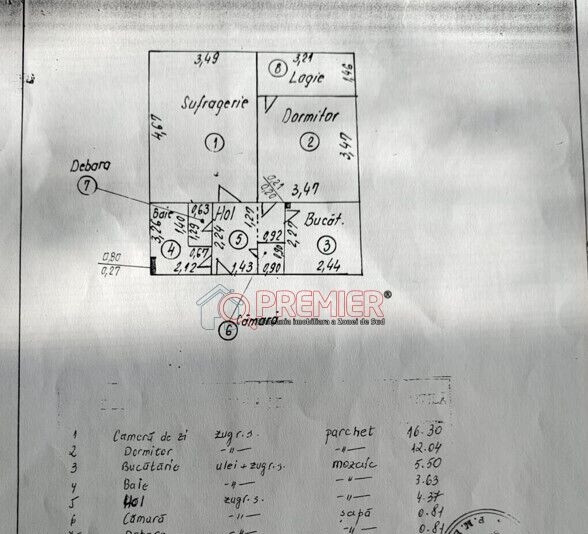 3,49
3,21
8
Logie
1,46
Sufragerie
Dormitor
4,67
1
2
3,47
Debara
7
0,21
0,20
3,47
Baie
0,63
Hol
1,22
Bucăt.
3,26
1,40
1,29
2,24
5
0,92
2,27
3
4
0,67
0,90
0,80
0,27
2,12
1,43
0,90
2,44
PREMIER ®
imobiliara a Zonei de Sud
6 Cămară
1 Cameră de zi zugr.s. parchet 16.30
2 Dormitor -〃- -〃- 12.04
3 Bucătărie ulei+zugr.s. mozaic 5.50
4 Baie -〃- -〃- 3.63
5 Hol zugr.s. -〃- 4.37
6 Cămară -〃- șapă 0.81
Debara -〃- -〃- 0.81